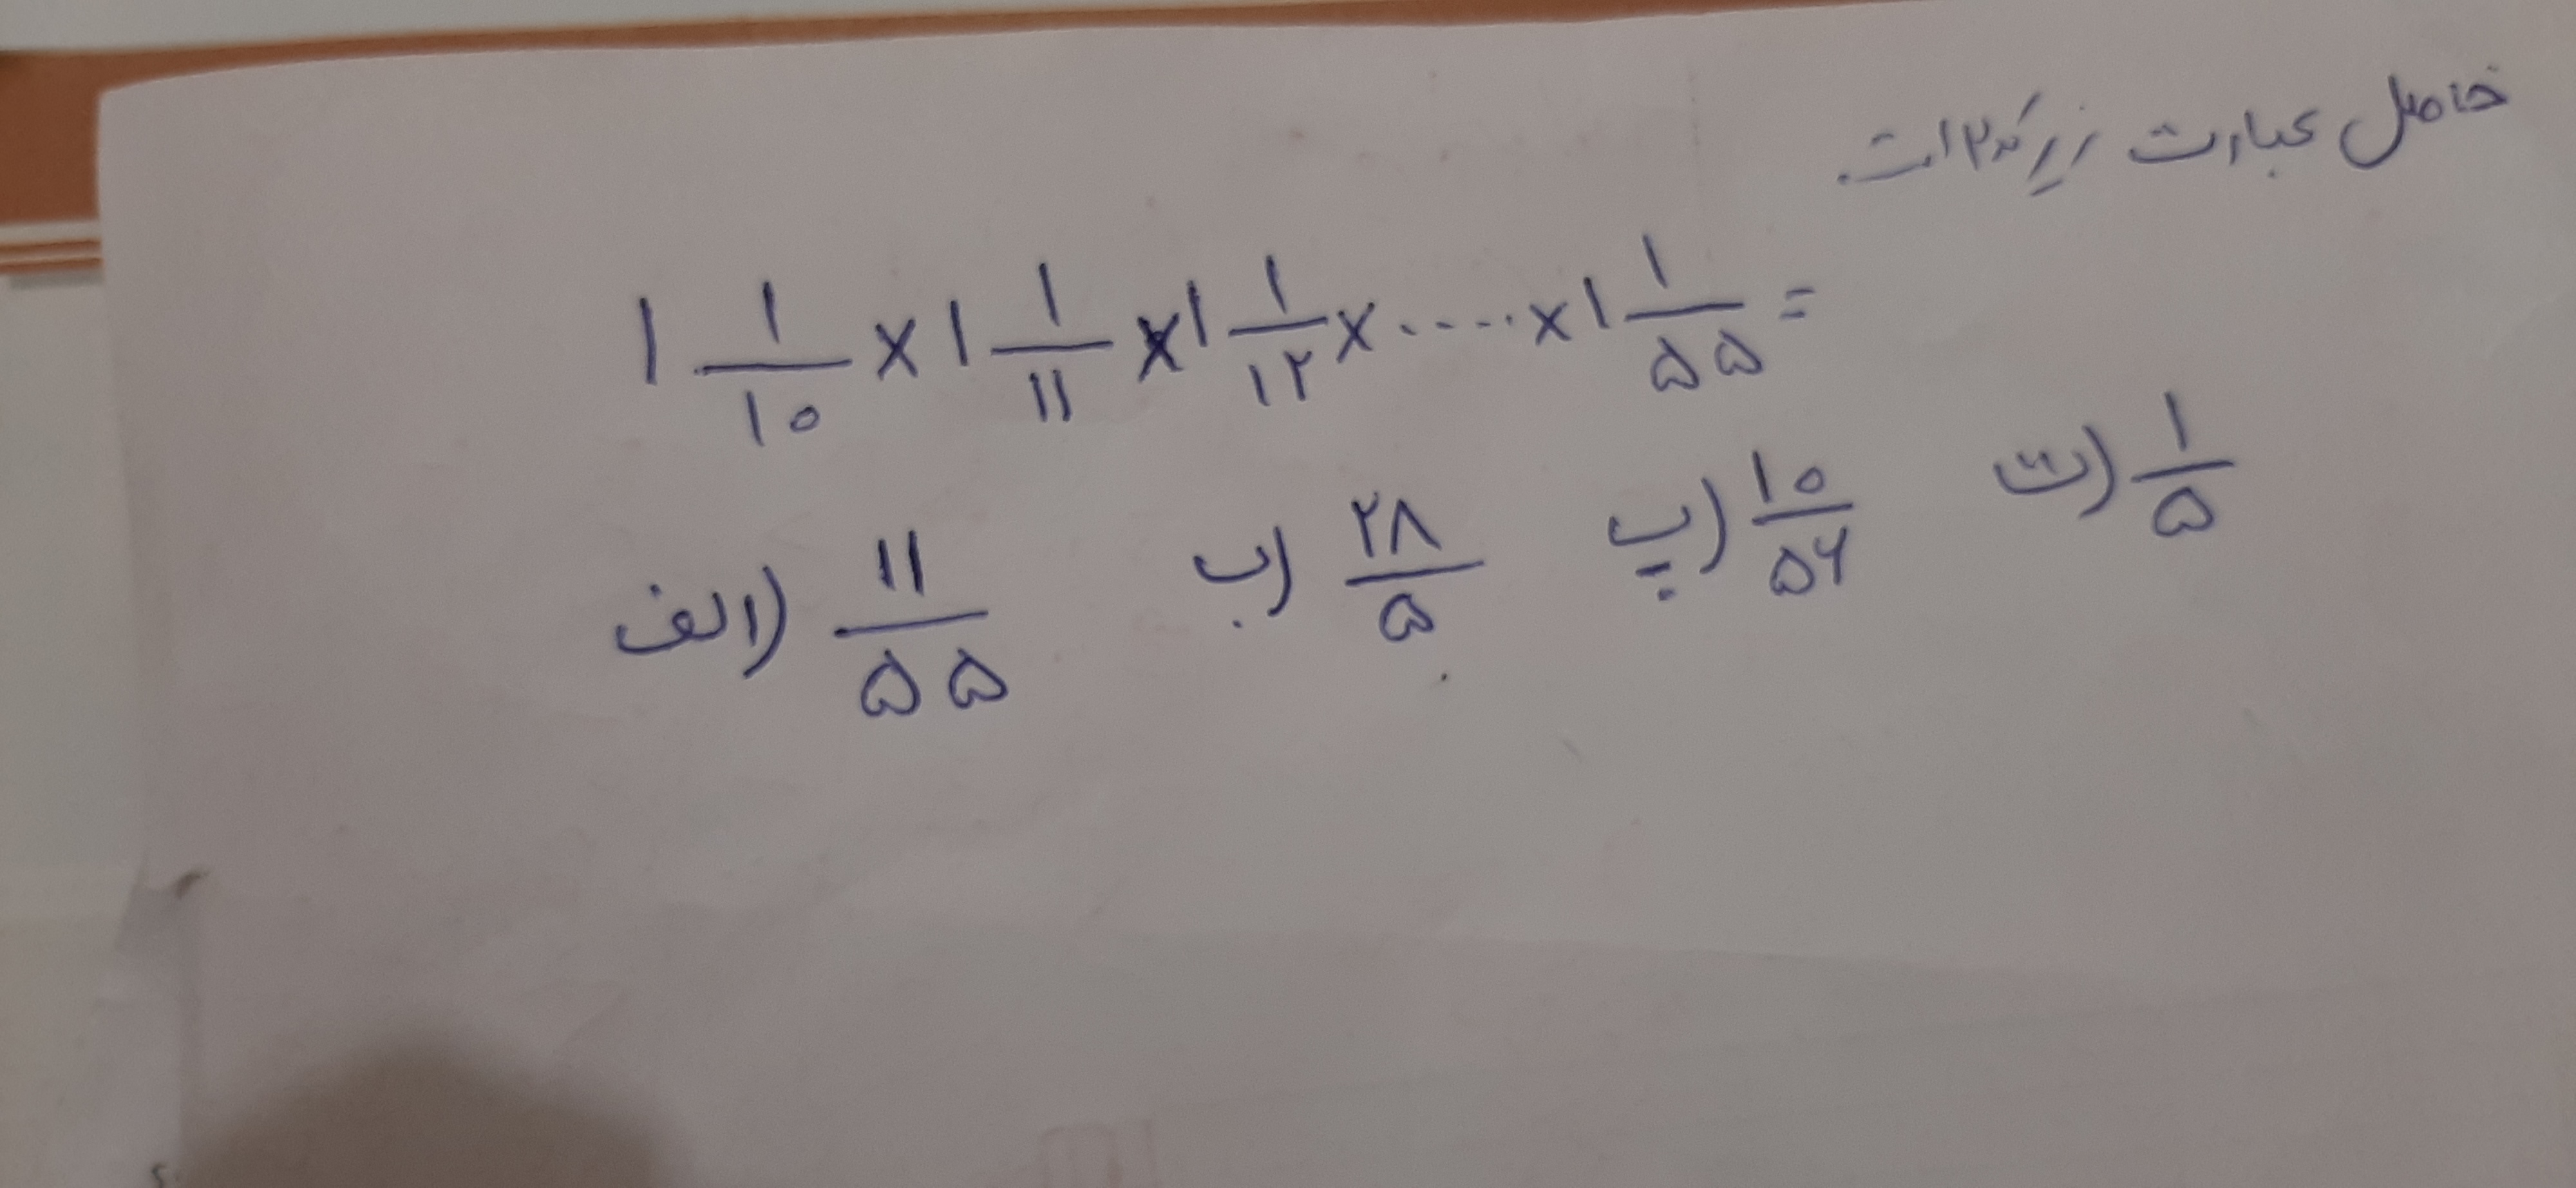 حاصل عبارت زیر کدام است.
۱ ۱/۱۰ × ۱ ۱/۱۱ × ۱ ۱/۱۲ × ..... × ۱ ۱/۵۵ =
الف) ۱۱/۵۵ ب) ۲۸/۵ پ) ۱۰/۵۶ ت) ۱/۵